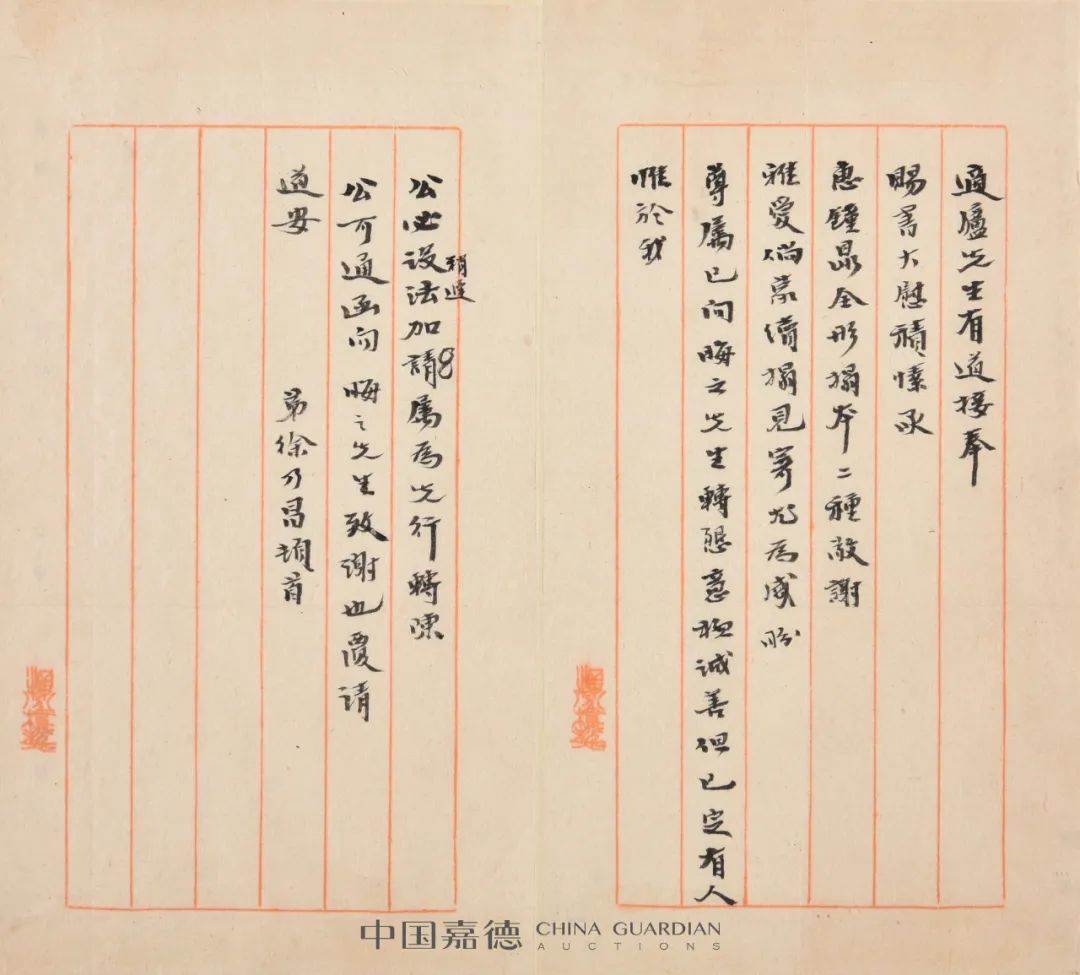 適廬先生有道接奉
賜書大慰積愫承
惠鐘鼎全形搨本二種敬謝
雅愛倘蒙續搨見寄尤為感盼
尊屬已向晦之先生轉懇意極誠善但已定有人
惟於我
公必設法加請屬為先行轉陳
稍遲
公可通函向晦之先生致謝也覆請
道安
弟徐乃昌頓首
中国嘉德 CHINA GUARDIAN
AUCTIONS